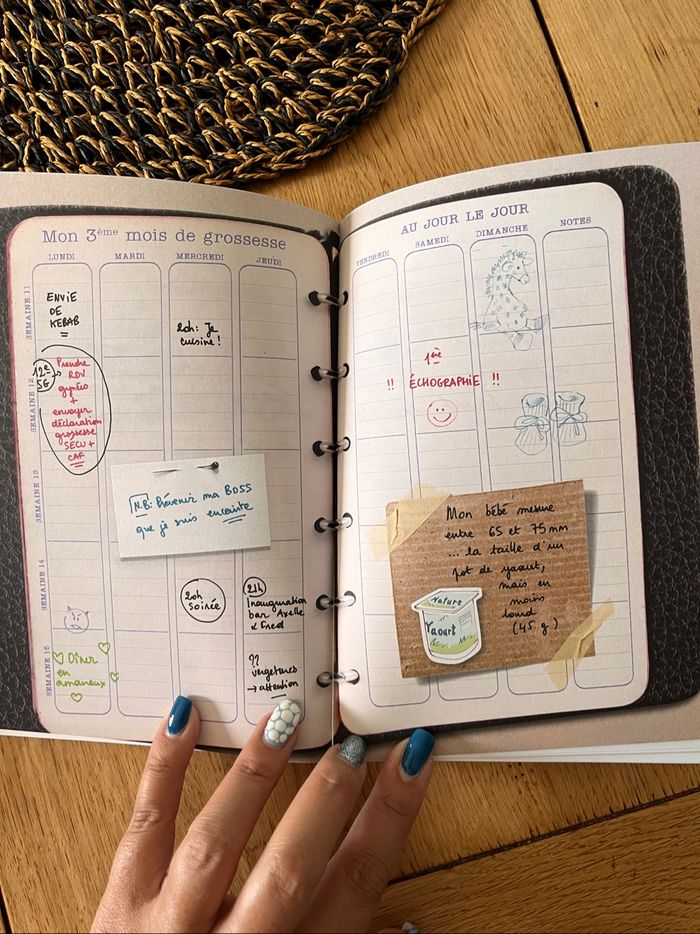 Mon 3ème mois de grossesse
LUNDI
MARDI
MERCREDI
JEUDI
SEMAINE 11
ENVIE
DE
KEBAB
20h: Je
cuisine !
SEMAINE 12
12e
SG
Prendre
RDV
gynéco
+
envoyer
déclaration
grossesse
SÉCU +
CAF
SEMAINE 13
N.B: Prévenir ma BOSS
que je suis enceinte
SEMAINE 14
20h
Soirée
21h
Inauguration
bar Axelle
& Fred
SEMAINE 15
Dîner
en
amoureux
??
vergetures
→ attention
AU JOUR LE JOUR
VENDREDI
SAMEDI
DIMANCHE
NOTES
1ère
!! ÉCHOGRAPHIE !!
Mon bébé mesure
entre 65 et 75 mm
... la taille d'un
pot de yaourt,
mais en
moins
lourd
(45 g)
Nature
Yaourt